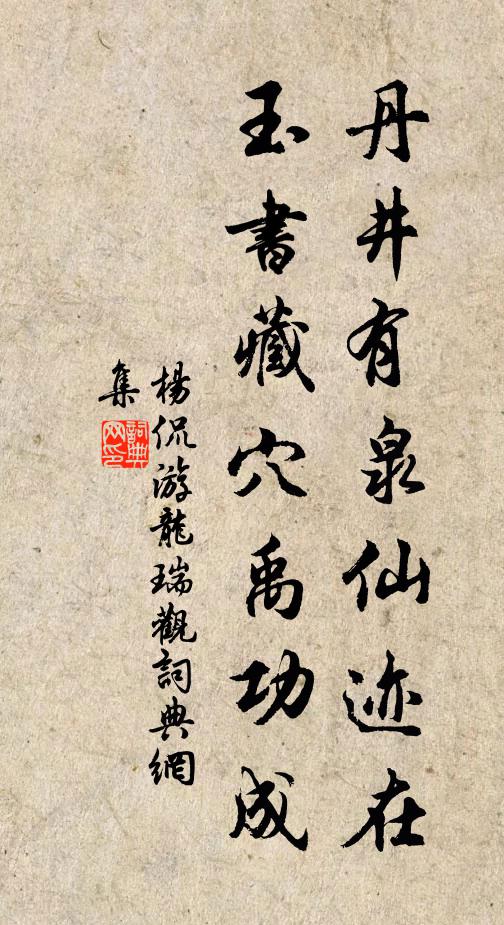 丹井有泉仙迹在
玉書藏穴禹功成
楊侃游龍瑞觀詞典網
集
詞典
网印